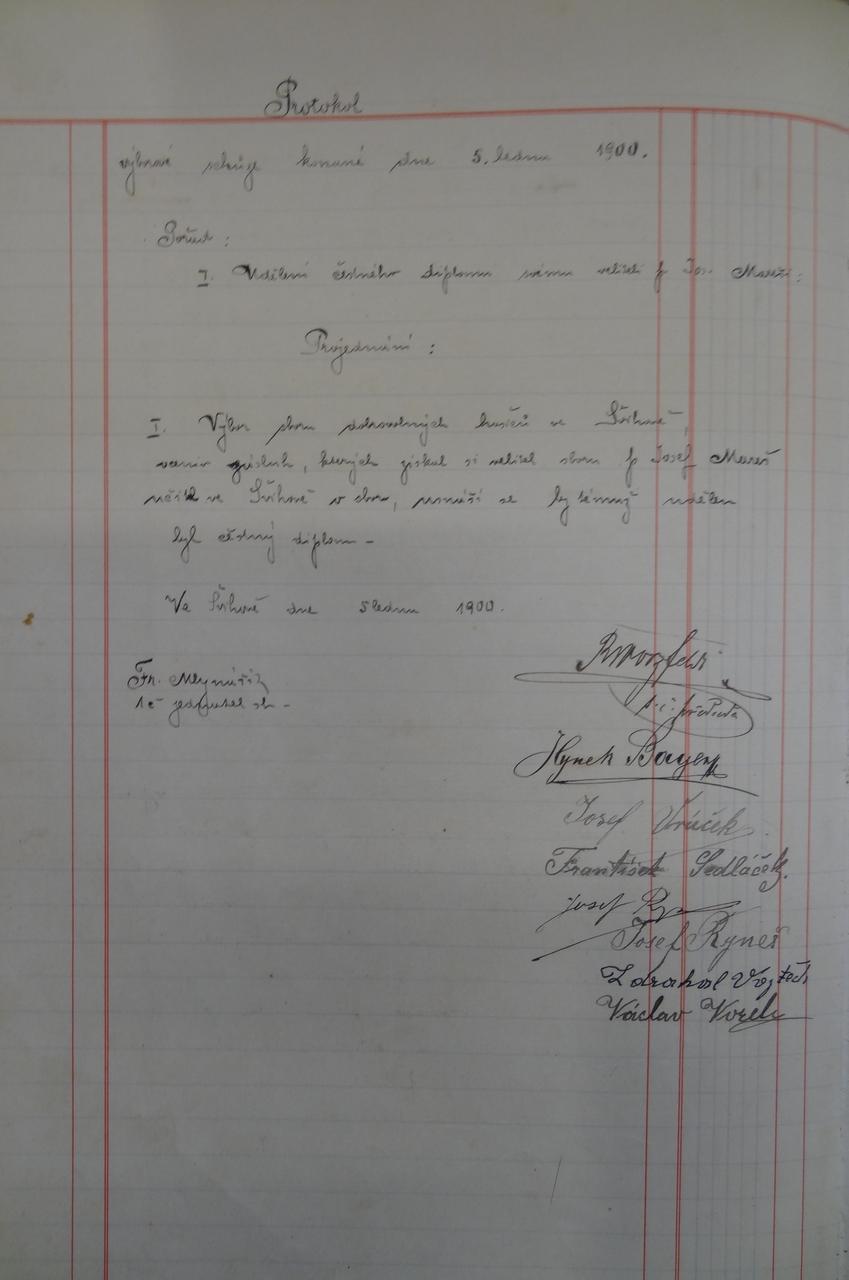 Protokol
výborové schůze konané dne 5. ledna 1900.
Pořad :
I. Udělení čestného diplomu svému veliteli p Jos. Mareši :
Projednání :
I. Výbor sboru dobrovolných hasičů ve Švihově,
zásluh, kterých získal si velitel sboru p Josef Mareš
ve Švihově v sboru, usnáší se by témuž udělen
byl čestný diplom –
Ve Švihově dne 5 ledna 1900.
Fr. Mlynářík
t č jednatel sb –
t. č. předseda
Hynek Bayer
Josef
František Sedláček.
Josef
Josef Ryneš
Zdrahal Vojtěch
Václav